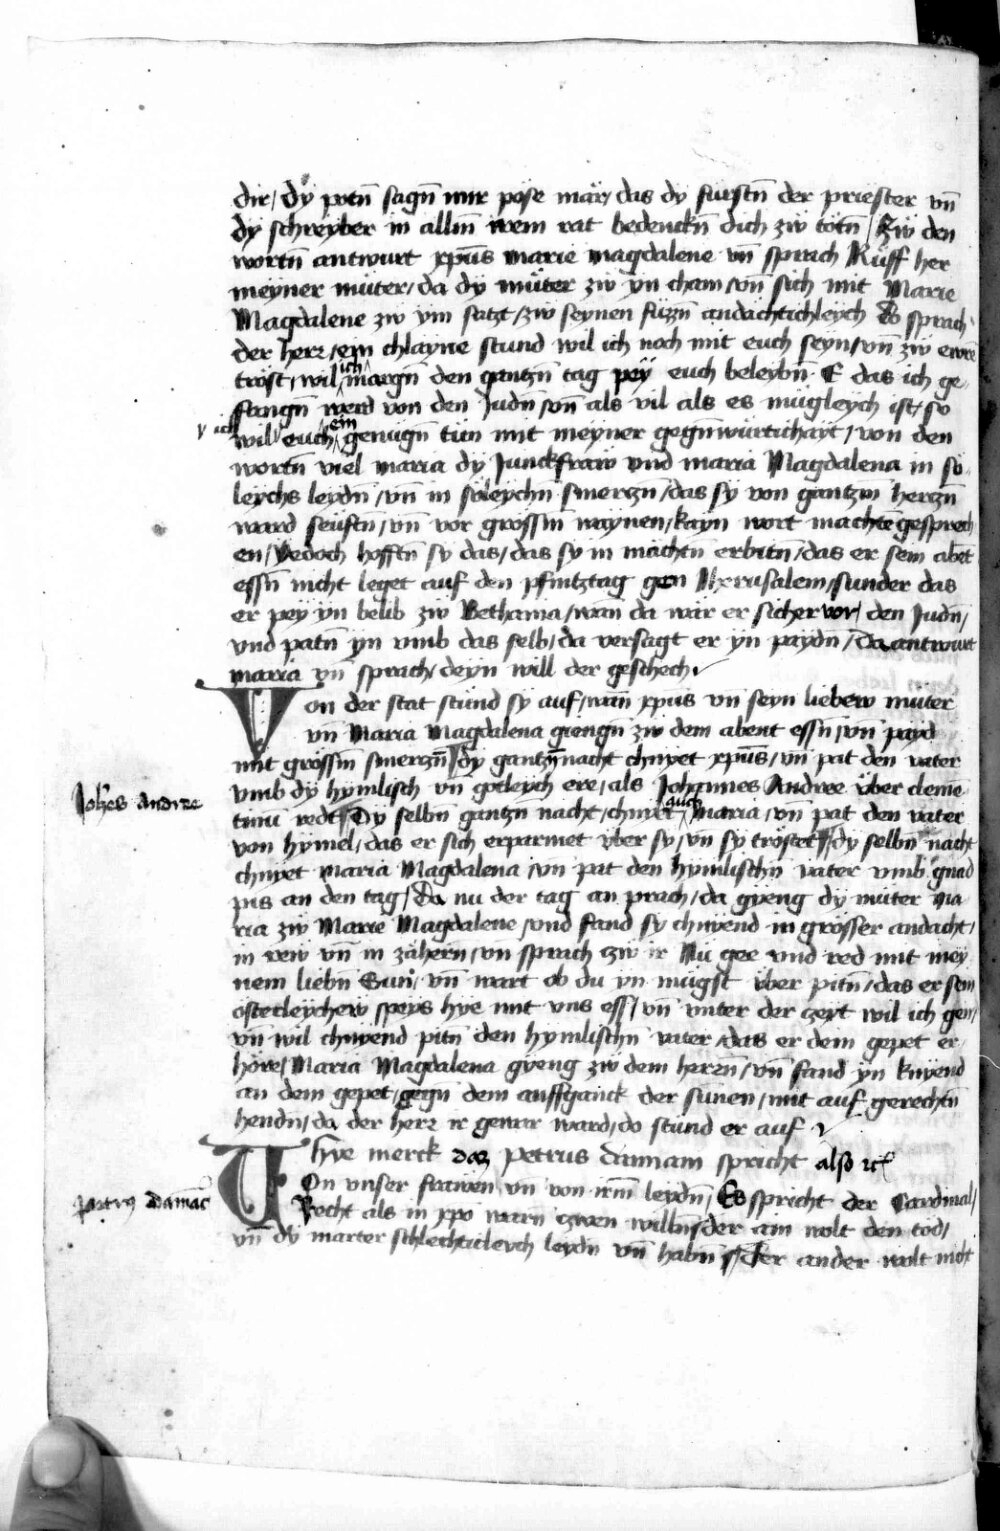 dir / dÿ potn̄ sagn̄ mir pöse mär / das dÿ fürstn̄ der priester vn̄
dÿ schreÿber in allm̄ irem rat bedenckn̄ dich zẅ tötn̄ / Zẅ den
wortn̄ antwurt xpūs marie magdalene vn̄ sprach Rüff her
meyner müter / da dÿ müter zẅ yn cham / vn̄ sich mit Marie
Magdalene zẅ ym satzt / zẅ seynen füzzn̄ andächtichleych do sprach
der herr / ein chlayne stund wil ich noch mit euch seyn / vn̄ zẅ ewrē
tröst / wil ich margn̄ den gantzn̄ tag peÿ euch beleybn̄ E das ich ge-
fangn̄ werd von den Judn̄ / vn̄ als vil als es mügleych ist / so
wil ich euch ein genügn̄ tün mit meyner gegn̄würtichayt / von den
wortn̄ viel maria dÿ Junckfraw vnd maria Magdalena in sö-
leychs leydn̄ / vn̄ in söleychn̄ smerczn̄ / das sy von gantzm̄ herczn̄
ward seüftn̄ / vn̄ vor grossm̄ waynen / kayn wort machtē gesprech
en / Yedoch hofftn̄ sy das / das sy in mächtn̄ erbitn̄ / das er sein abēt
essn̄ nicht leget auf den pfintztag gen Jherusalem / sunder das
er pey yn belib zẅ Bethania / wan̄ da wär er sicher vor den Judn̄ /
vnd patn̄ yn vmb das selb / da versagt er yn paydn̄ / Da antwurt
maria vn̄ sprach / deyn will der geschech
Von der stat stünd sy auf / wan̄ xpūs vn̄ seyn liebew muter
vn̄ Maria Magdalena giengn̄ zẅ dem abent essn̄ / vn̄ payd
mit grössm̄ smerczn̄ / dy gantzn̄ nacht chnyet xpūs / vn̄ pat den vater
vmb dÿ hymlisch vn̄ gotleych ere / als Johannes Andree über cleme-
Joh̄es Andree
tinū redt / Dÿ selbn̄ gantzn̄ nacht / chnyet auch maria / vn̄ pat den vater
von hymel / das er sich erparmet vber sy / vn̄ sy tröstet / dÿ selbn̄ nacht
chnyet maria Magdalena / vn̄ pat den hymlischn̄ vater vmb gnad
pis an den tag / Da nu der tag an prach / da gyeng dÿ müter Ma-
ria zẅ Marie Magdalene / vnd fand sy chnyend in grösser andacht /
in rew vn̄ in zähern / vn̄ sprach czw ir Nü gee vnd red mit mey
nem liebn̄ Sun / vn̄ wart ob du yn mügst vber pitn̄ / das er sein
osterleychew speys hye mit vns ess / vn̄ vnter der czeyt wil ich gen /
vn̄ wil chnyend pitn̄ den hymlischn̄ vater / das er dein gepet er-
höre / Maria Magdalena gyeng zẅ dem herrn̄ / vn̄ fand yn knyend
an dem gepet / gegn̄ dem auffganck der sunen / mit auf gerechtn̄
hendn̄ / da der herr ir gewar ward / do stünd er auf
hye merck daz petrus damiani spricht also
Von vnser frawen vn̄ von irm̄ leydn̄ / Es spricht der Cardinal /
Petrus damiā
Recht als in xpo warn czwen willn̄ / der ain wolt den tod /
vn̄ dÿ marter schlechticleych leydn̄ vn̄ habn̄ / der ander wolt nicht